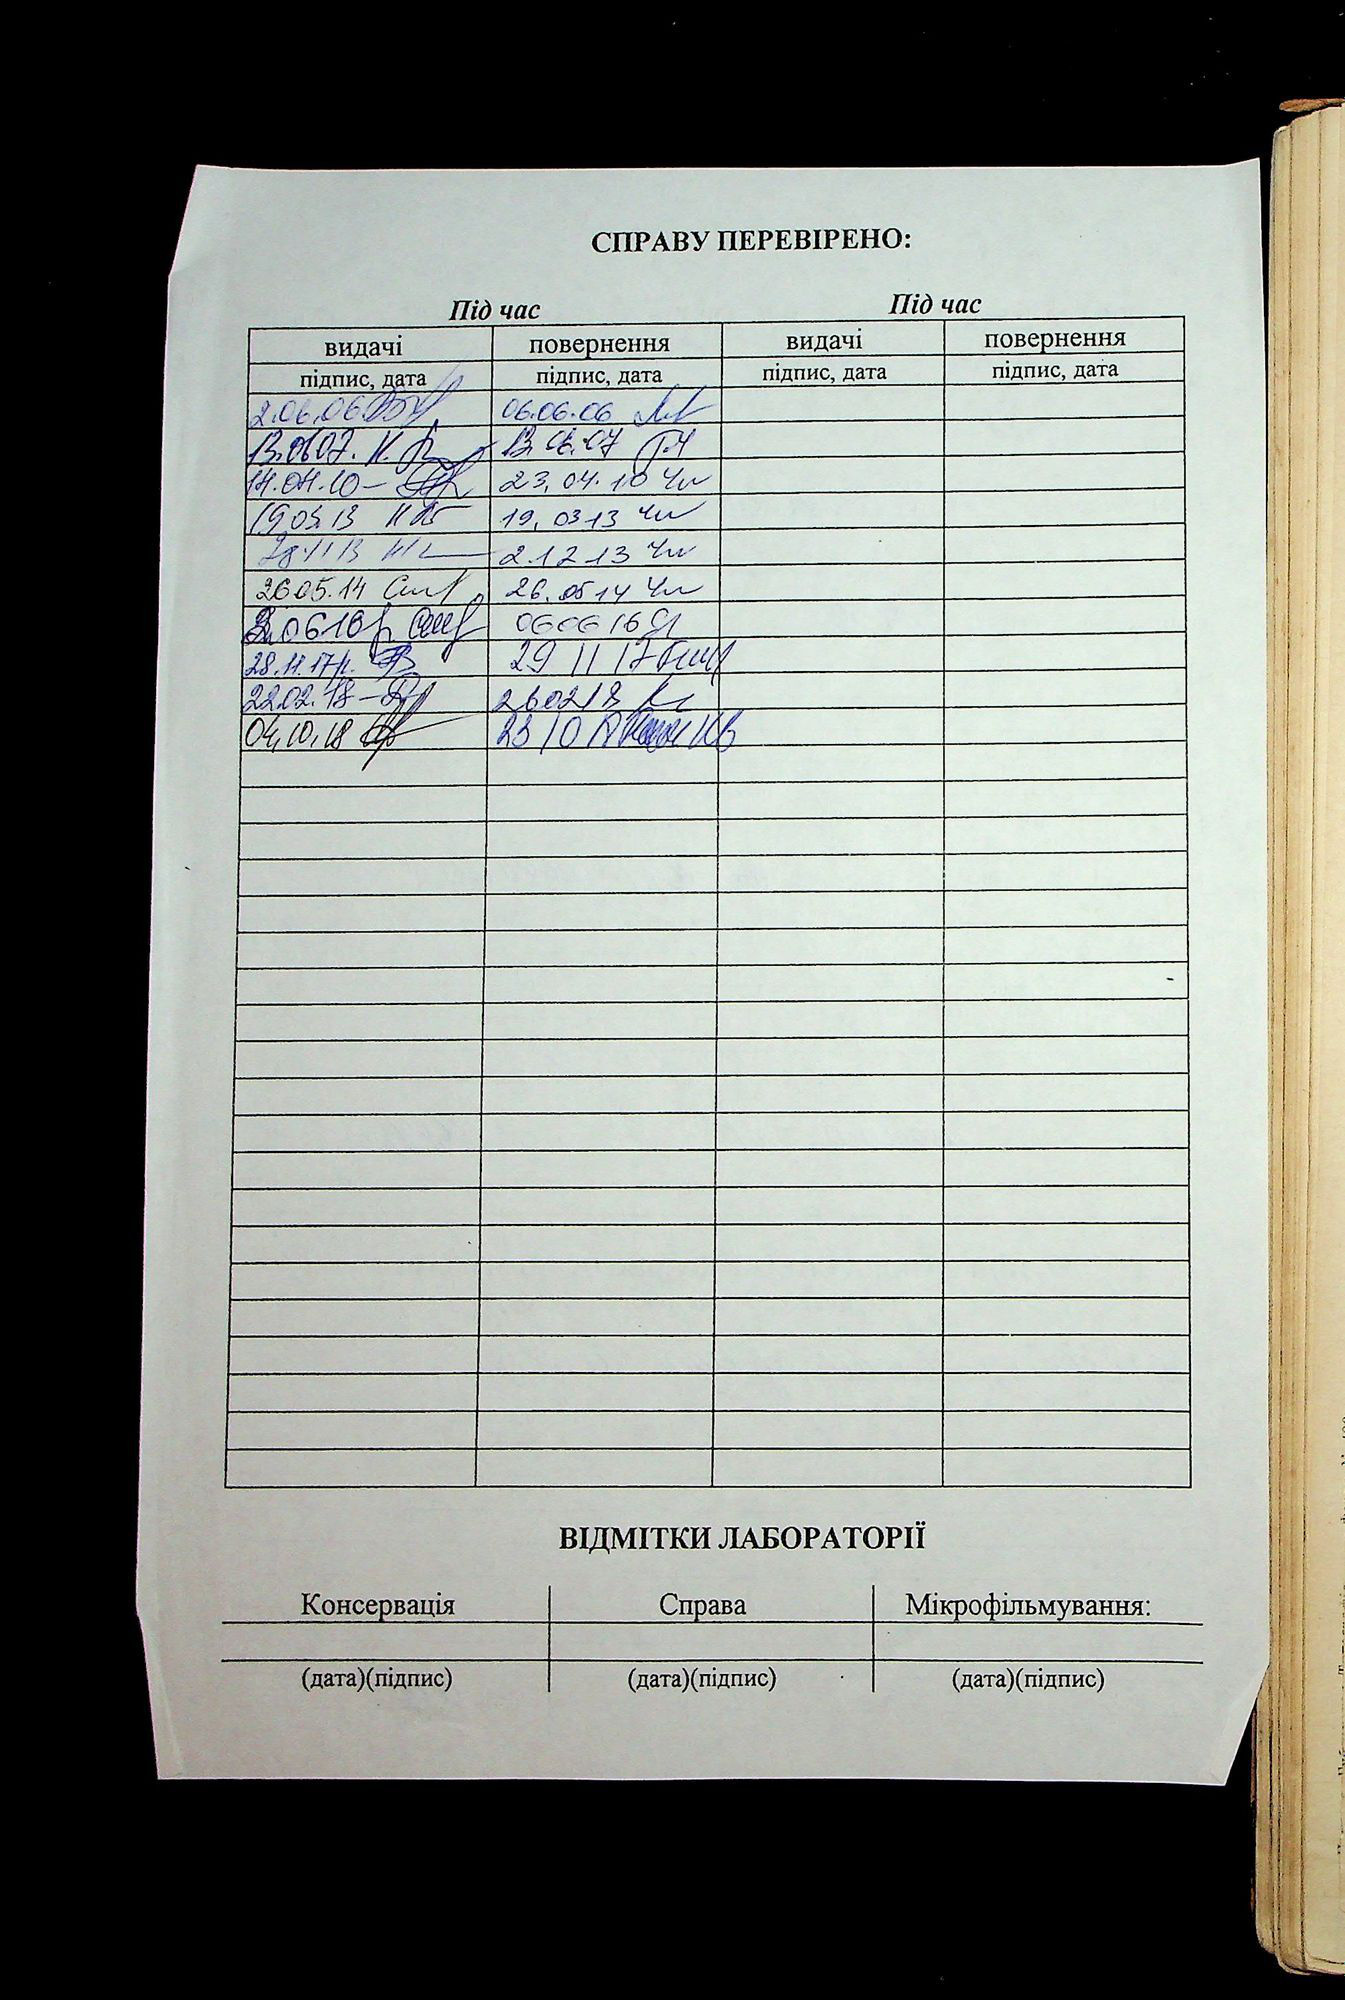 СПРАВУ ПЕРЕВІРЕНО:
Під час Під час
видачі повернення видачі повернення
підпис, дата підпис, дата підпис, дата підпис, дата
2.06.06 06.06.06
13.06.07. К. 13.06.07
14.04.10 – 23.04.10 Чи
19.03.13 19.03 13 Чи
28.11 13 2 12 13 Чи
26 05.14 26.05 14 Чи
06 16 06 06 16
28.11.17р. 29 11 17
22 02.18 – 26 02 18
04.10.18 23 10
ВІДМІТКИ ЛАБОРАТОРІЇ
Консервація Справа Мікрофільмування:
(дата)(підпис) (дата)(підпис) (дата)(підпис)